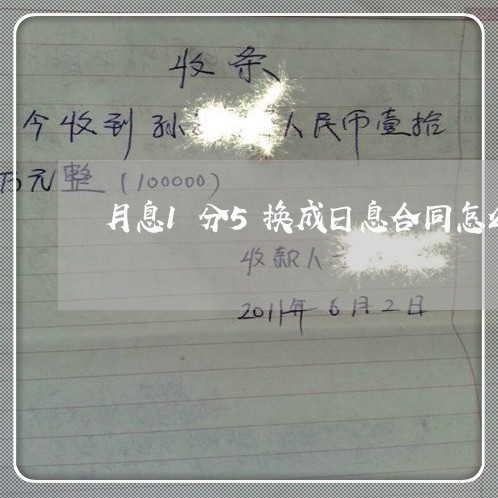 收条
今收到孙 人民币壹拾
万元整(100000)
月息1分5换成日息合同怎
收款人
2011年6月2日